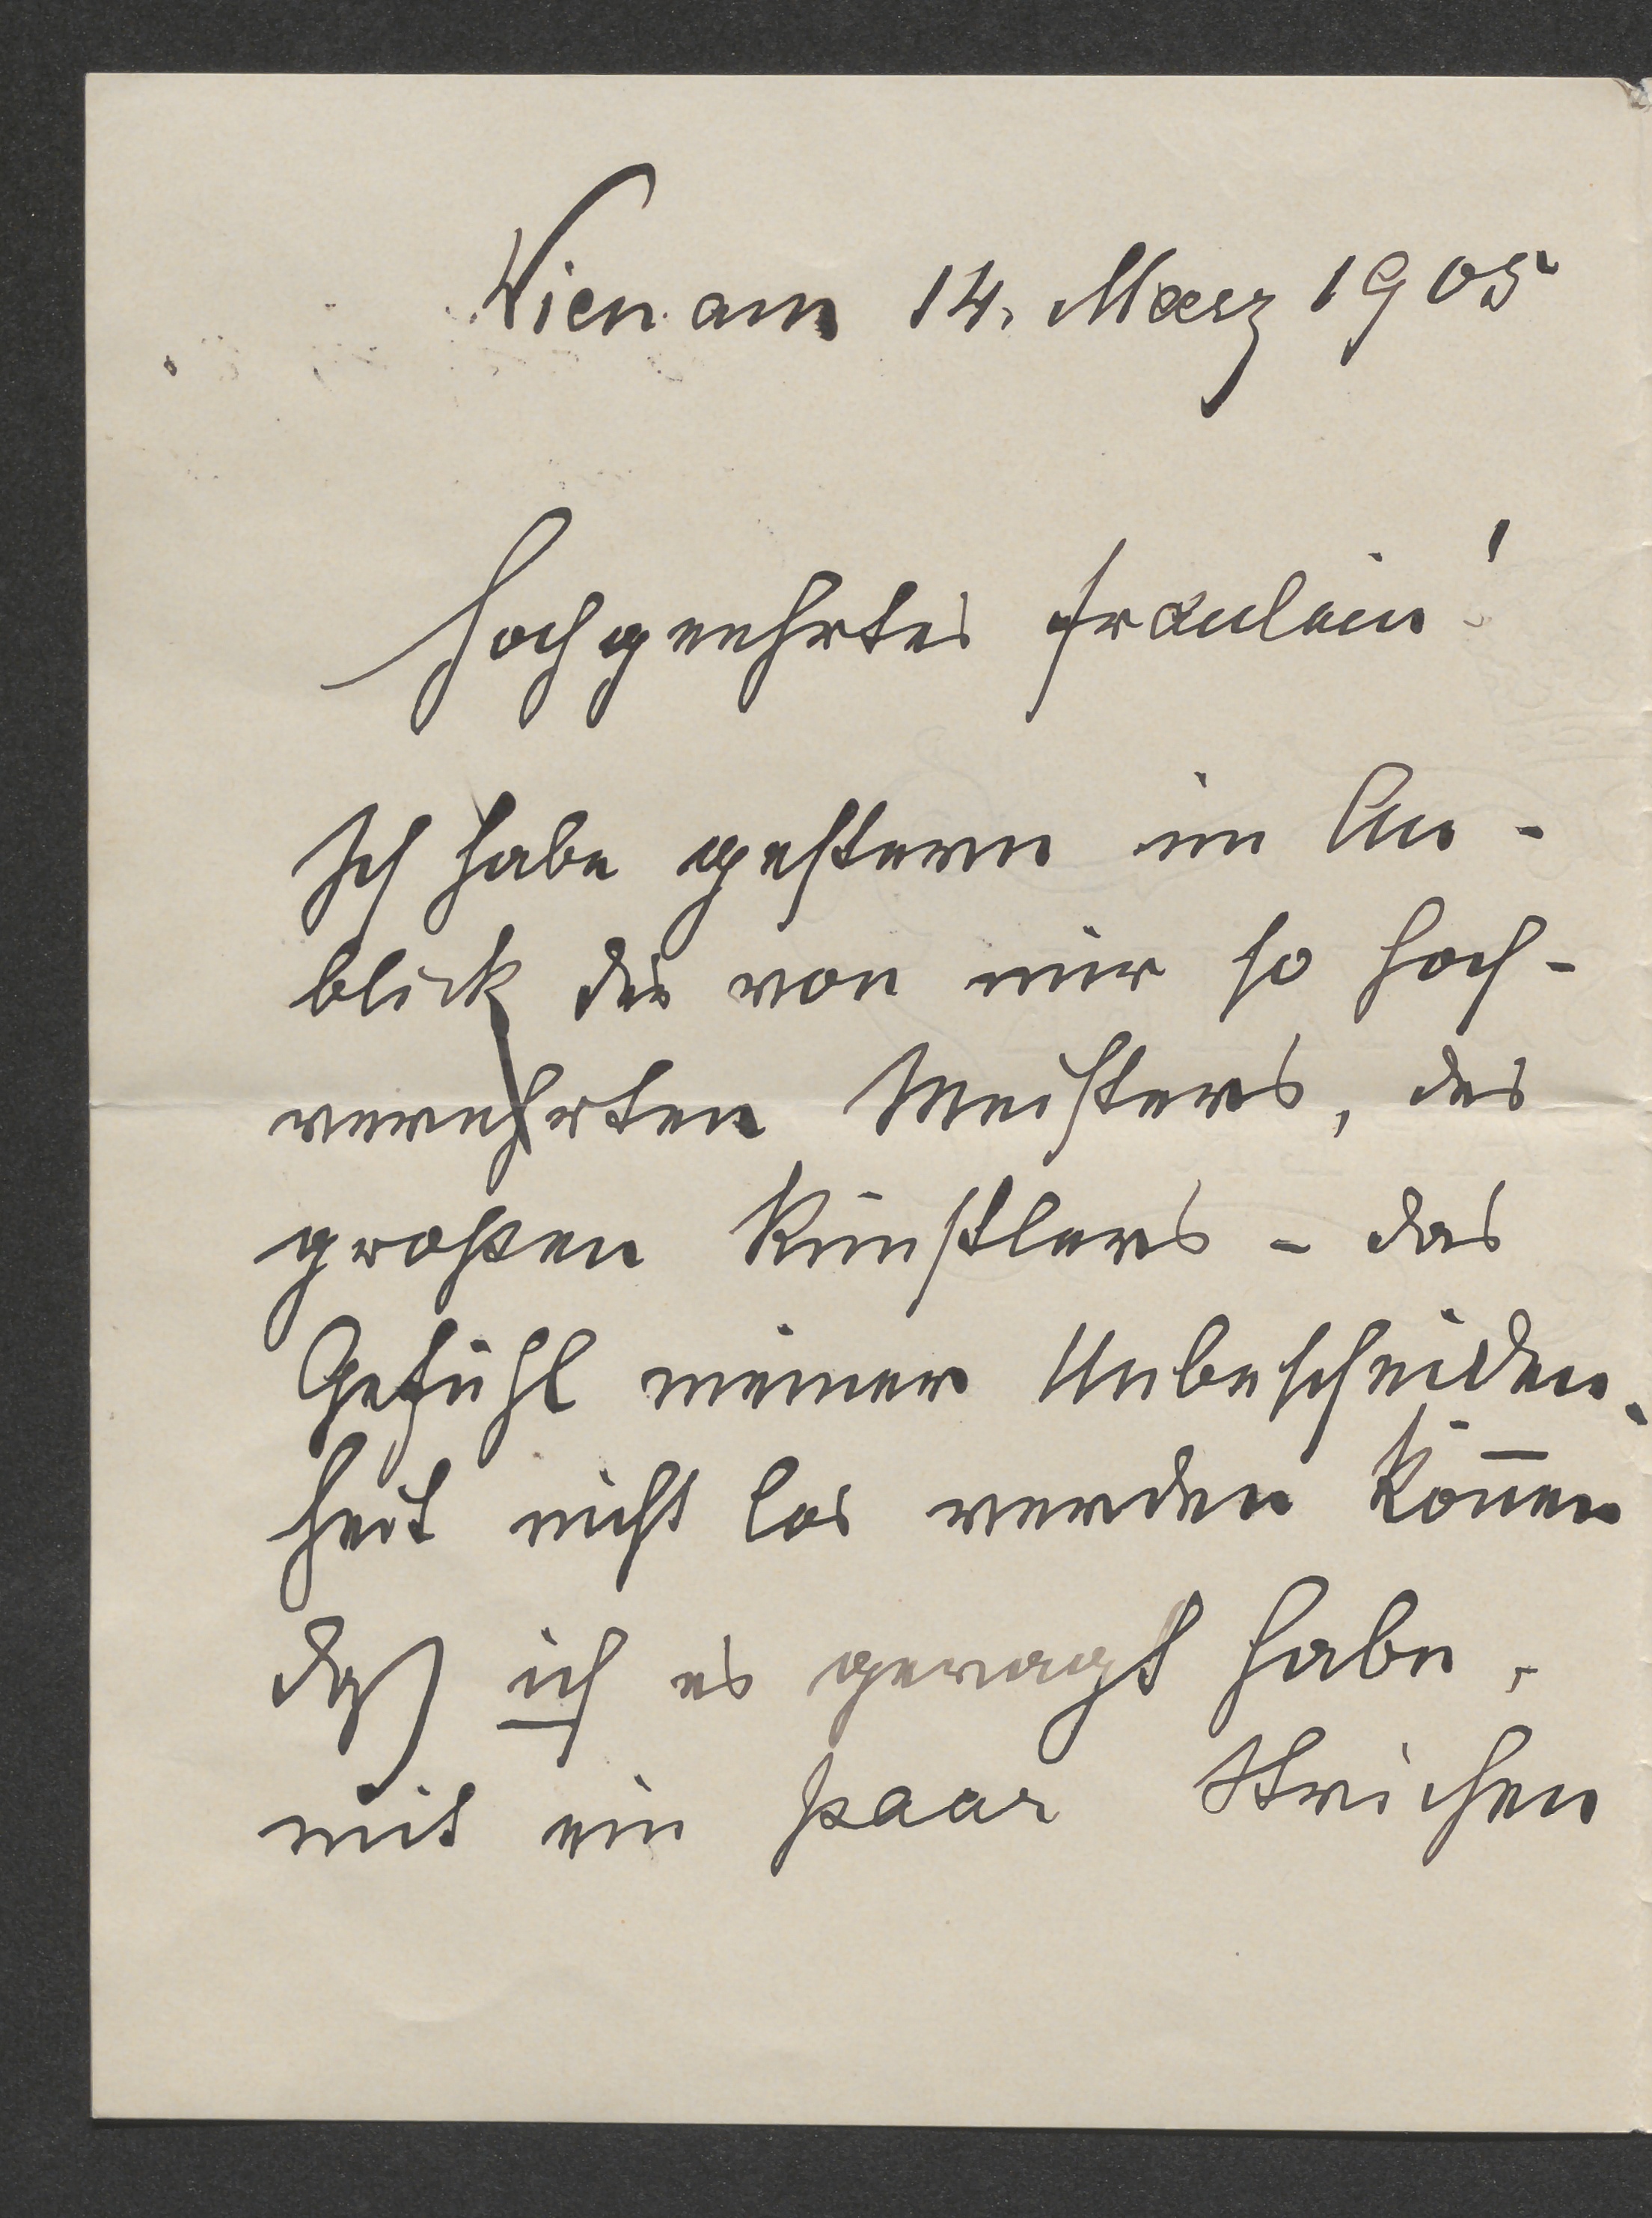 Wien am 14. Maerz 1905
Hochgeehrtes Fräulein!
Ich habe gestern im An-
blick des von mir so hoch-
verehrten Meisters, des
großen Künstlers - das
Gefühl meiner Unbescheiden-
heit nicht los werden kön̄en
daß ich es gewagt habe,
mit ein paar Strichen